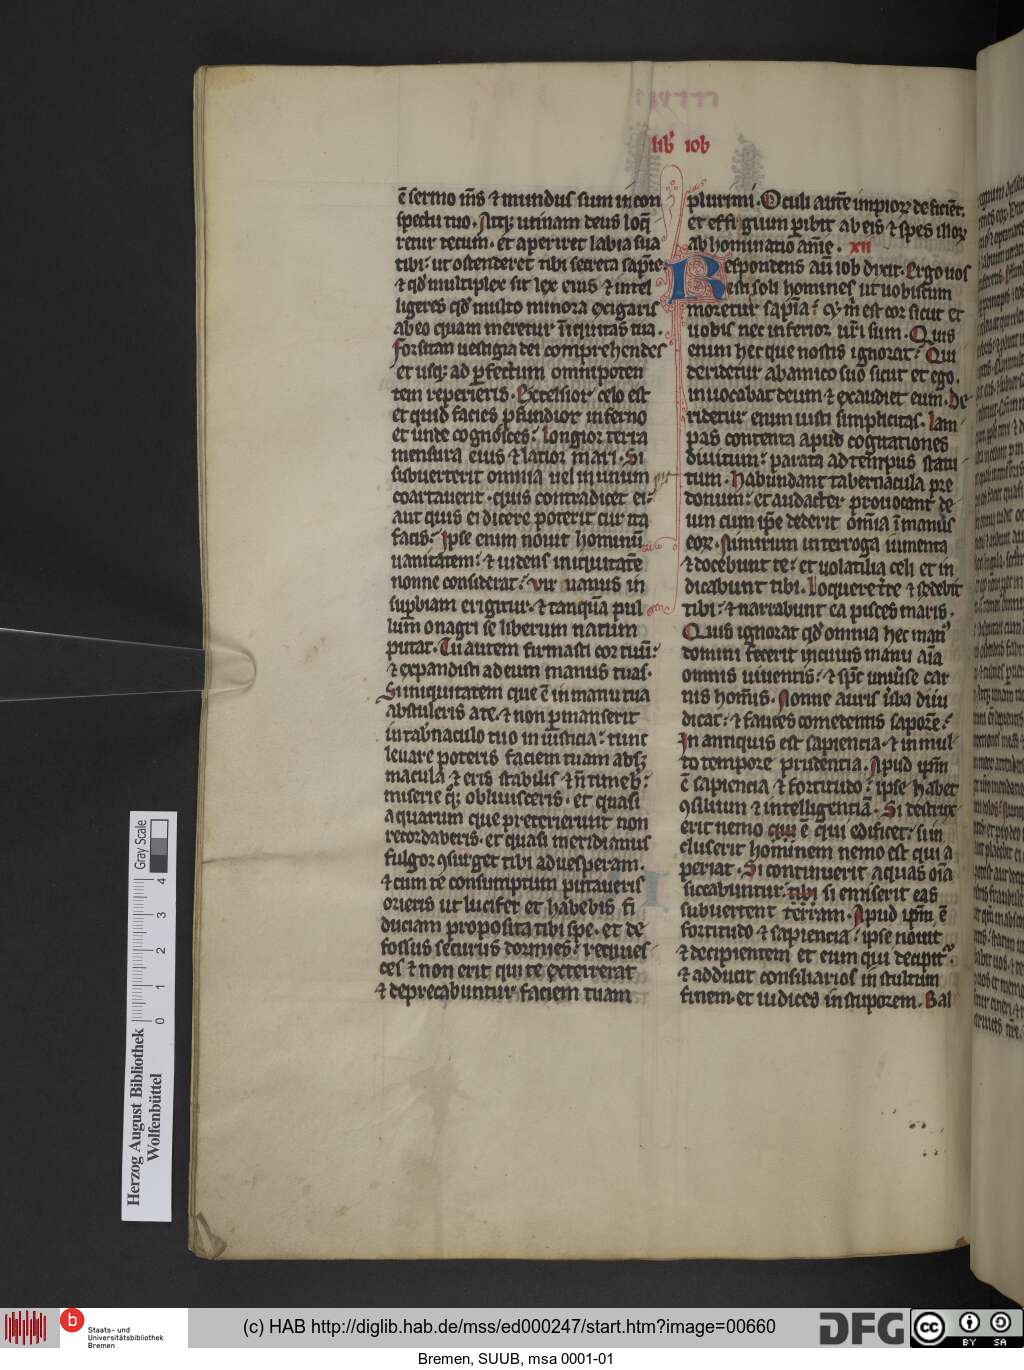 lib' iob
ē sermo m̄s ⁊ mundus sum in con
spectu tuo. Atq; utinam deus loq̄
retur tecum. et aperiret labia sua
tibi. ut ostenderet tibi secreta sapīe.
⁊ qđ multiplex sit lex eius ⁊ intel
ligeres qđ multo minora exigaris
ab eo quam meretur īiquitas tua.
Forsitan uestigia dei comprehendes
et usq; ad perfectum omnipoten
tem reperieris. Excelsior celo est
et quid facies profundior inferno
et unde cognosces? Longior terra
mensura eius ⁊ latior mari. Si
subuerterit omnia uel in unum
coartauerit. quis contradicet ei?
aut quis ei dicere poterit cur ita
facis? Ipse enim nouit hominū
uanitatem. ⁊ uidens iniquitatē
nonne considerat? Vir uanus in
superbiam erigitur. ⁊ tanquā pul
lum onagri se liberum natum
putat. Tu autem firmasti cor tuū.
⁊ expandisti ad eum manus tuas.
Si iniquitatem que ē in manu tua
abstuleris a te. ⁊ non permanserit
in tab'naculo tuo iniusticia. tunc
leuare poteris faciem tuam absq;
macula ⁊ eris stabilis ⁊ ñ timeb'.
miserie q̄; obliuisceris. et quasi
aquarum que preterierunt non
recordaberis. et quasi meridianus
fulgor ꝯsurget tibi ad uesperam.
⁊ cum te consumptum putaueris
orieris ut lucifer et habebis fi
duciam proposita tibi spe. et de
fossus securus dormies. requies
ces ⁊ non erit qui te exterreat
⁊ deprecabuntur faciem tuam
plurimi. Oculi autē impioꝝ deficiēt.
et effugium peribit ab eis ⁊ spes illoꝝ
abhominatio anīe. xii
Respondens aū iob dixit. Ergo uos
estis soli homines ut uobiscum
moretur sapīa? et m̄ est cor sicut et
uobis nec inferior uri sum. Quis
enim hec que nostis ignorat? Qui
deridetur ab amico suo sicut et ego.
inuocabat deum ⁊ exaudiet eum. De
ridetur enim iusti simplicitas. Lam
pas contenta apud cogitationes
diuitum. parata ad tempus statu
tum. Habundant tabernacula pre
donum. et audacter prouocant de
um cum ipse dederit om̄ia ī manus
eoꝝ. Nimirum interroga iumenta
⁊ docebunt te. et uolatilia celi et in
dicabunt tibi. Loquere tr̄e ⁊ r̄ndebit
tibi. ⁊ narrabunt ea pisces maris.
Quis ignorat qđ omnia hec man'
domini fecerit in cuius manu aīa
omnis uiuentis. ⁊ spc uniuse car
nis homīs. Nonne auris uba diiu
dicat. ⁊ fauces comedentis saporē.
In antiquis est sapiencia. ⁊ in mul
to tempore prudentia. Apud ipm̄
ē sapiencia ⁊ fortitudo. ipse habet
ꝯsilium ⁊ intelligentiā. Si destrux
erit nemo ē qui edificet. si in
cluserit hominem nemo est qui a
periat. Si continuerit aquas oīa
siccabuntur. si emiserit eas
subuertent terram. Apud ipm̄ ē
fortitudo ⁊ sapiencia. ipse nouit
⁊ decipientem et eum qui decipit'.
⁊ adducit consiliarios in stultum
finem. et iudices in stuporem. Bal
Gray Scale
0 1 2 3 4
Herzog August Bibliothek
Wolfenbüttel
b
Staats- und
Universitätsbibliothek
Bremen
(c) HAB http://diglib.hab.de/mss/ed000247/start.htm?image=00660
DFG
cc
BY SA
Bremen, SUUB, msa 0001-01